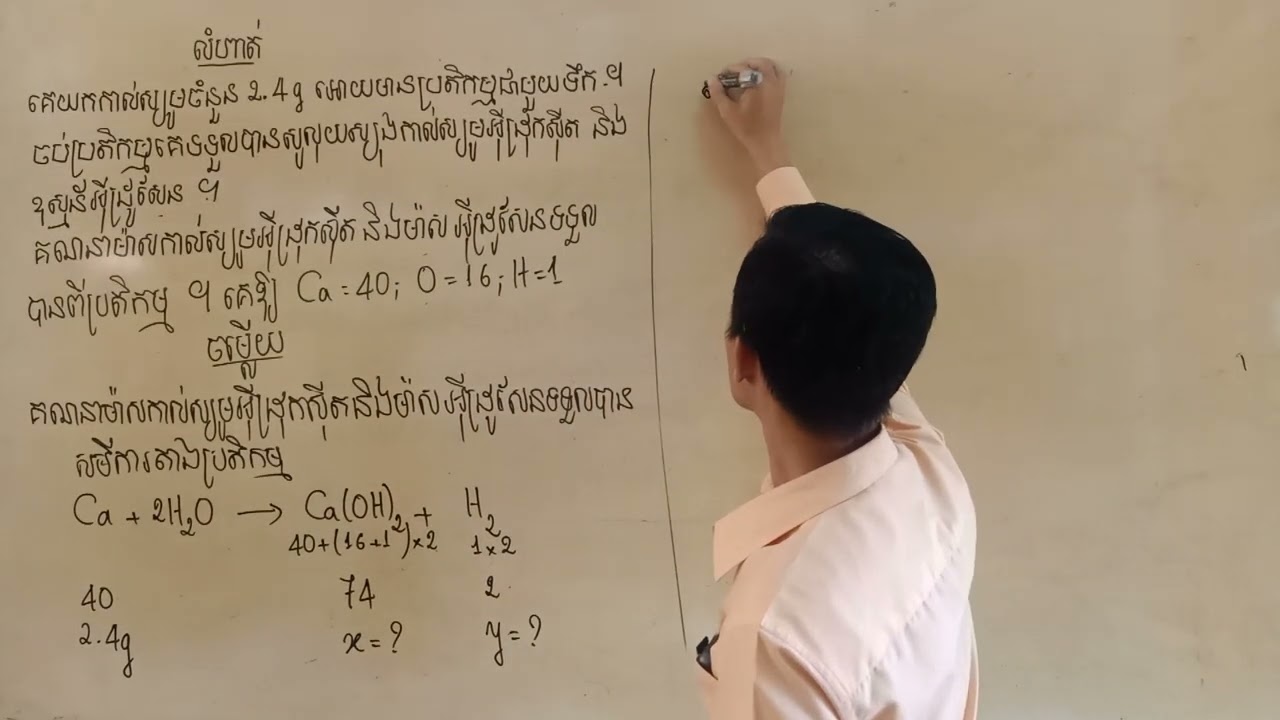 លំហាត់
គេយកកាល់ស្យូមចំនួន 2.4g អោយមានប្រតិកម្មជាមួយទឹក ។
ចប់ប្រតិកម្មគេទទួលបានសូលុយស្យុងកាល់ស្យូមអ៊ីដ្រុកស៊ីត និង
ឧស្ម័នអ៊ីដ្រូសែន ។
គណនាម៉ាសកាល់ស្យូមអ៊ីដ្រុកស៊ីត និងម៉ាស អ៊ីដ្រូសែនទទួល
បានពីប្រតិកម្ម ។ គេឱ្យ Ca = 40; O = 16; H = 1
ចម្លើយ
គណនាម៉ាសកាល់ស្យូមអ៊ីដ្រុកស៊ីតនិងម៉ាស អ៊ីដ្រូសែនទទួលបាន
សមីការតាងប្រតិកម្ម
Ca + 2H₂O → Ca(OH)₂ + H₂
40+(16+1)×2 1×2
40 74 2
2.4g x = ? y = ?